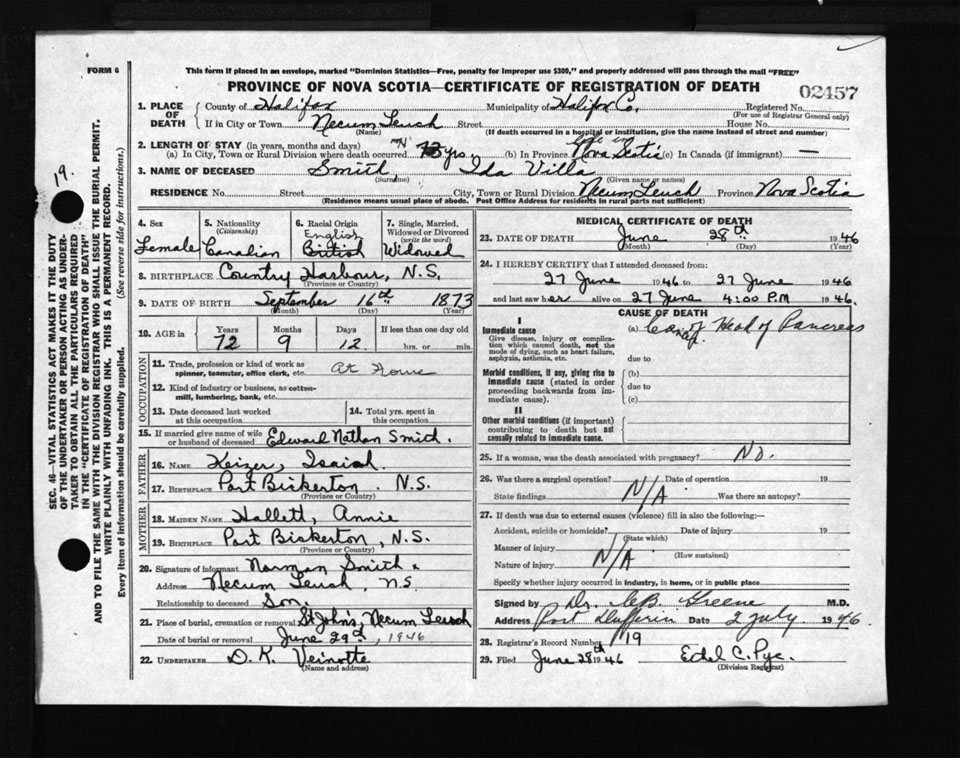 FORM 6
This form if placed in an envelope, marked "Dominion Statistics—Free, penalty for improper use $300," and properly addressed will pass through the mail "FREE"
PROVINCE OF NOVA SCOTIA—CERTIFICATE OF REGISTRATION OF DEATH
02457
1. PLACE OF DEATH County of Halifax Municipality of Halifax Co. Registered No.
(For use of Registrar General only)
If in City or Town Necum Teuch Street House No.
(Name) (If death occurred in a hospital or institution, give the name instead of street and number)
2. LENGTH OF STAY (in years, months and days)
(a) In City, Town or Rural Division where death occurred yrs. (b) In Province life in Nova Scotia (c) In Canada (if immigrant) —
3. NAME OF DECEASED Smith Ida Villa
(Surname) (Given name or names)
RESIDENCE No. Street City, Town or Rural Division Necum Teuch Province Nova Scotia
(Residence means usual place of abode. Post Office Address for residents in rural parts not sufficient)
4. Sex Female
5. Nationality (Citizenship) Canadian
6. Racial Origin English British
7. Single, Married, Widowed or Divorced (write the word) Widowed
8. BIRTHPLACE Country Harbour, N.S.
(Province or Country)
9. DATE OF BIRTH September 16th 1873
(Month) (Day) (Year)
10. AGE in Years Months Days If less than one day old
72 9 12 hrs. or min.
OCCUPATION
11. Trade, profession or kind of work as spinner, teamster, office clerk, etc. At Home
12. Kind of industry or business, as cotton-mill, lumbering, bank, etc.
13. Date deceased last worked at this occupation
14. Total yrs. spent in this occupation
15. If married give name of wife or husband of deceased Edward Nathan Smith.
FATHER
16. NAME Keizer, Isaiah
17. BIRTHPLACE Port Bickerton N.S.
(Province or Country)
MOTHER
18. MAIDEN NAME Hallett, Annie
19. BIRTHPLACE Port Bickerton, N.S.
(Province or Country)
20. Signature of informant Norman Smith x
Address Necum Teuch, N.S.
Relationship to deceased Son
21. Place of burial, cremation or removal St John's, Necum Teuch
Date of burial or removal June 29th, 1946
22. UNDERTAKER D. K. Veinotte
(Name and address)
MEDICAL CERTIFICATE OF DEATH
23. DATE OF DEATH June 28th 1946
(Month) (Day) (Year)
24. I HEREBY CERTIFY that I attended deceased from:
27 June 1946 to 27 June 1946
and last saw her alive on 27 June 4:00 PM 1946.
CAUSE OF DEATH
I
Immediate cause
Give disease, injury or complication which caused death, not the mode of dying, such as heart failure, asphyxia, asthenia, etc.
(a) Ca of Head of Pancreas
due to
Morbid conditions, if any, giving rise to immediate cause (stated in order proceeding backwards from immediate cause).
(b)
due to
(c)
II
Other morbid conditions (if important) contributing to death but not causally related to immediate cause.
25. If a woman, was the death associated with pregnancy? No.
26. Was there a surgical operation? Date of operation 19
State findings N/A Was there an autopsy?
27. If death was due to external causes (violence) fill in also the following:—
Accident, suicide or homicide? Date of injury 19
(State which)
Manner of injury N/A
(How sustained)
Nature of injury
Specify whether injury occurred in industry, in home, or in public place
Signed by Dr. Greene M.D.
Address Port Dufferin Date 2 July 1946
28. Registrar's Record Number 19
29. Filed June 28th 1946 Ethel C. Pye.
(Division Registrar)
19.
SEC. 46—VITAL STATISTICS ACT MAKES IT THE DUTY
OF THE UNDERTAKER OR PERSON ACTING AS UNDER-
TAKER TO OBTAIN ALL THE PARTICULARS REQUIRED
IN THE "CERTIFICATE OF REGISTRATION OF DEATH"
AND TO FILE THE SAME WITH THE DIVISION REGISTRAR WHO SHALL ISSUE THE BURIAL PERMIT.
WRITE PLAINLY WITH UNFADING INK. THIS IS A PERMANENT RECORD.
Every item of information should be carefully supplied. (See reverse side for instructions.)